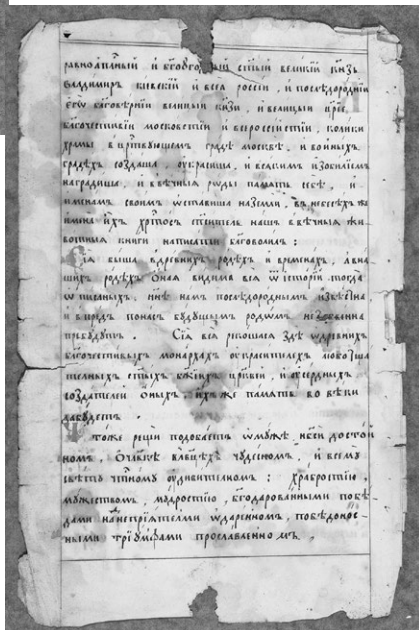 равноап҃лный и бг҃оуго҃ный ст҃ый великїй кн҃зь
владимиръ киевскїй и всеѧ россїи, и послѣдороднїи
егѡ бл҃говѣрнїи великїи кн҃зи, и велицыи црїе,
бл҃гочестивїи московстїи и всеросеїистїи, колики
храмы в црⷭтвующемъ градѣ москвѣ, и во иныхъ
градѣхъ создаша, оукрасиша, и всѧкимъ изобилїемъ
наградиша, и в вѣчныѧ роды памѧть себѣ, и
именамъ своимъ ѡставиша на земли, въ небесѣхъ же
имена ихъ хрⷭтосъ сп҃ситель нашъ в вѣчныѧ жи
вотныѧ книги написати бл҃говолилъ:
Сїѧ быша в древнихъ родѣхъ и временахъ, а в на
шихъ родѣхъ Ѻнаѧ видима всѧ ѿ исторїи тогда
ѡписаныхъ, нн҃ѣ намъ послѣдороднымъ извѣстна
и впредь по насъ будущымъ родѡмъ незабвенна
пребудутъ. Сїѧ всѧ рекошасѧ здѣ ѡ древнихъ
бл҃гочестивыхъ монархахъ оукрасителех любоща
телныхъ ст҃ыхъ бж҃їихъ црк҃вей, и оусердныхъ
создателей Ѻныхъ, ихъ же памѧть во вѣки
забудетъ.
Тоже рещи подобаетъ ѡ мужѣ, нб҃си достой
номъ, Ѻ чл҃вкѣ в вѣцѣхъ чудесномъ, и всему
свѣту чⷭтному оудивителномъ: храбростїю,
мужествомъ, мудростїю, бг҃одарованными побѣ
дами над непрїѧтелми ѡдаренномъ, побѣдонос-
ными трїумфами прославленномъ,